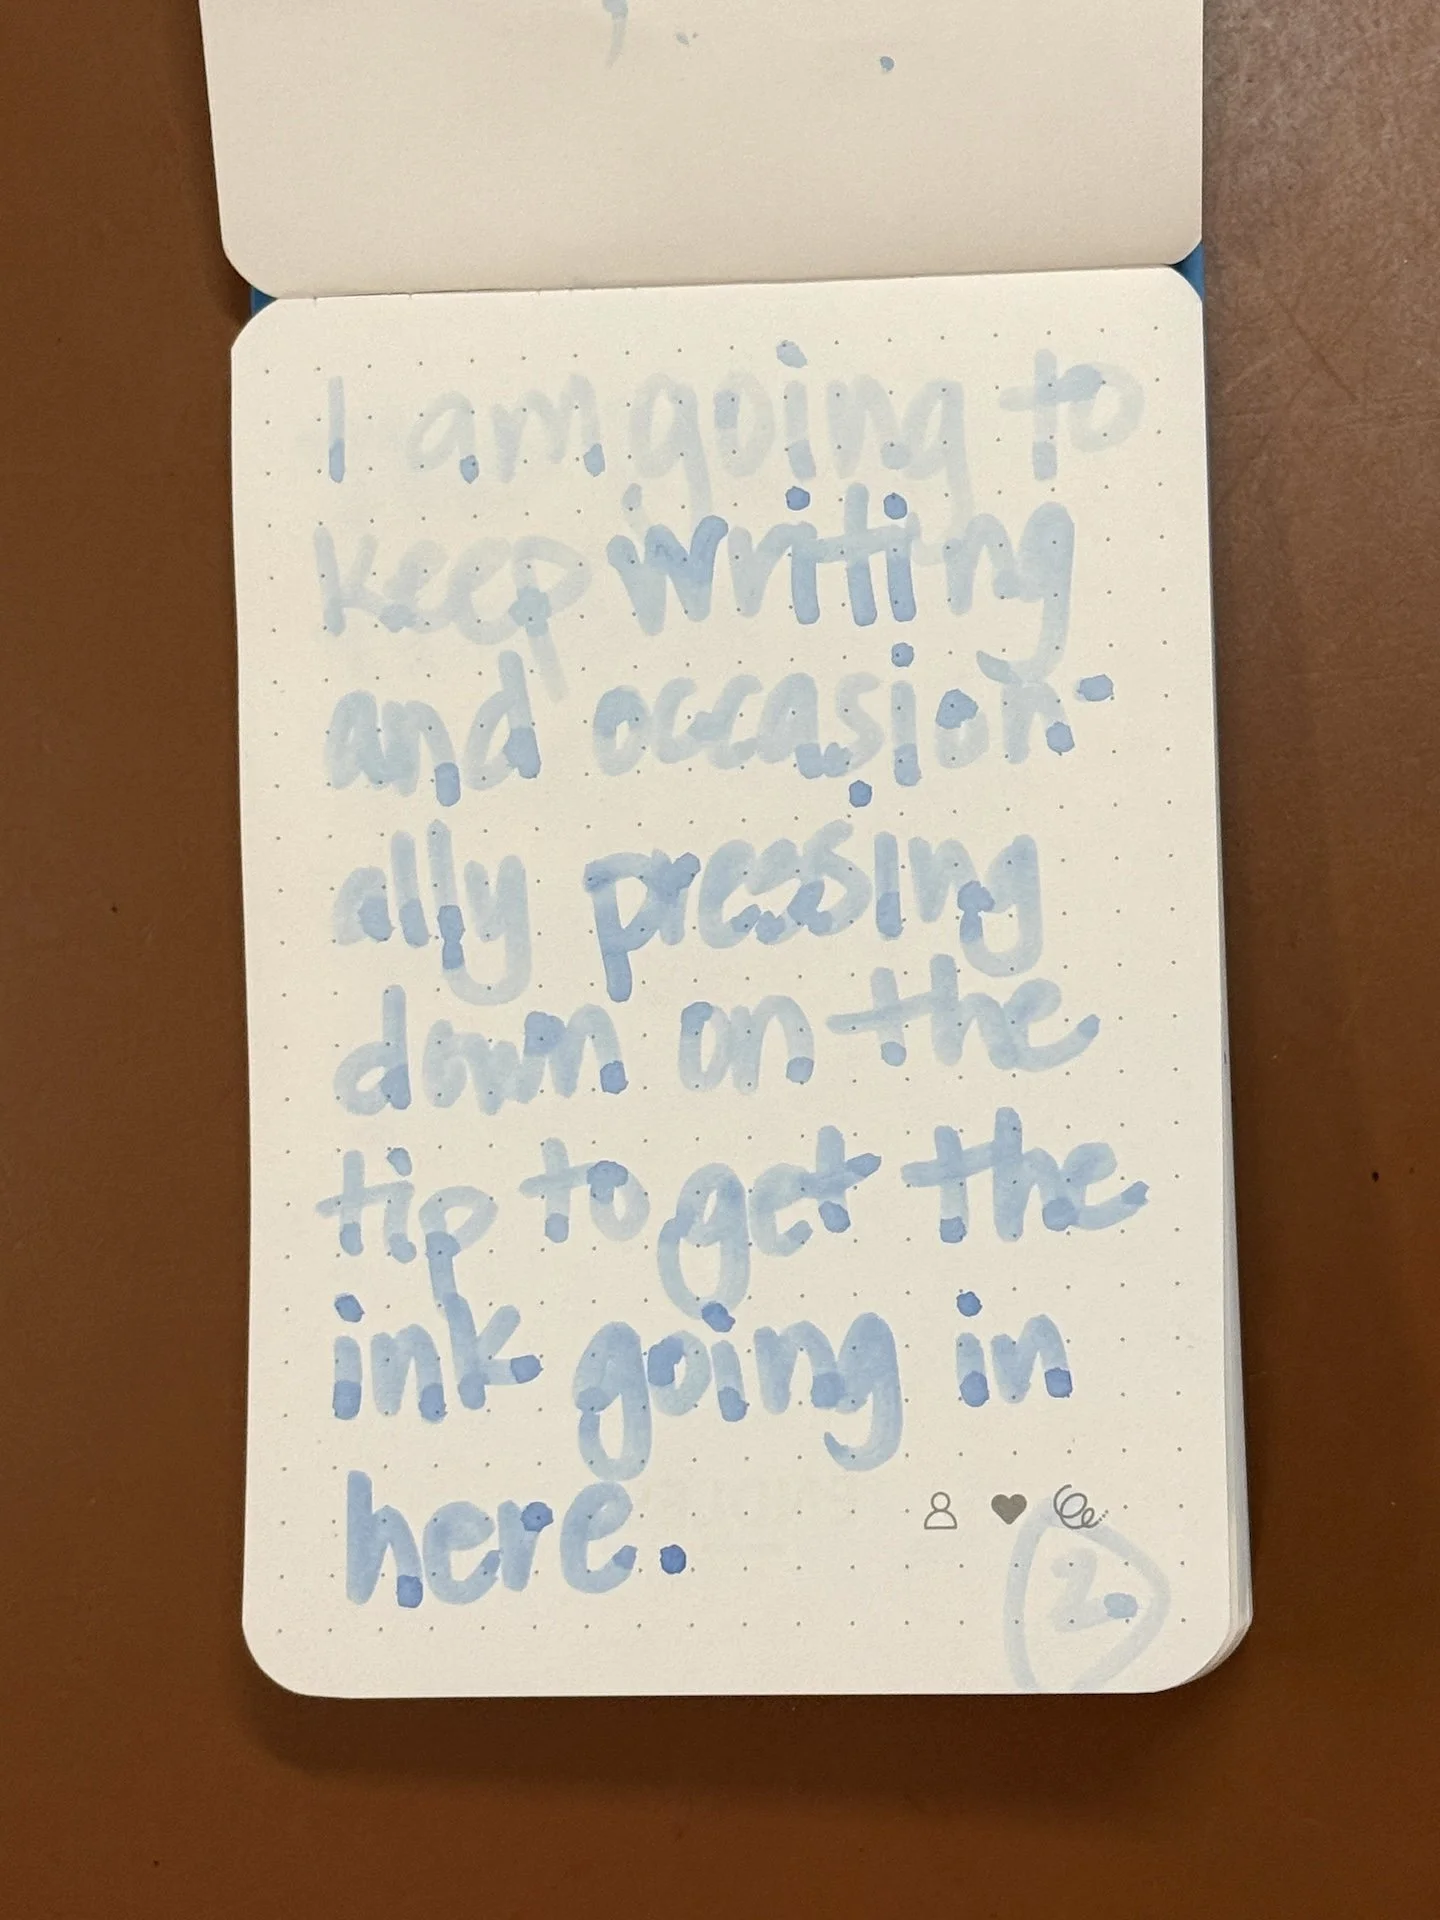 I am going to
keep writing
and occasion-
ally pressing
down on the
tip to get the
ink going in
here.
2.